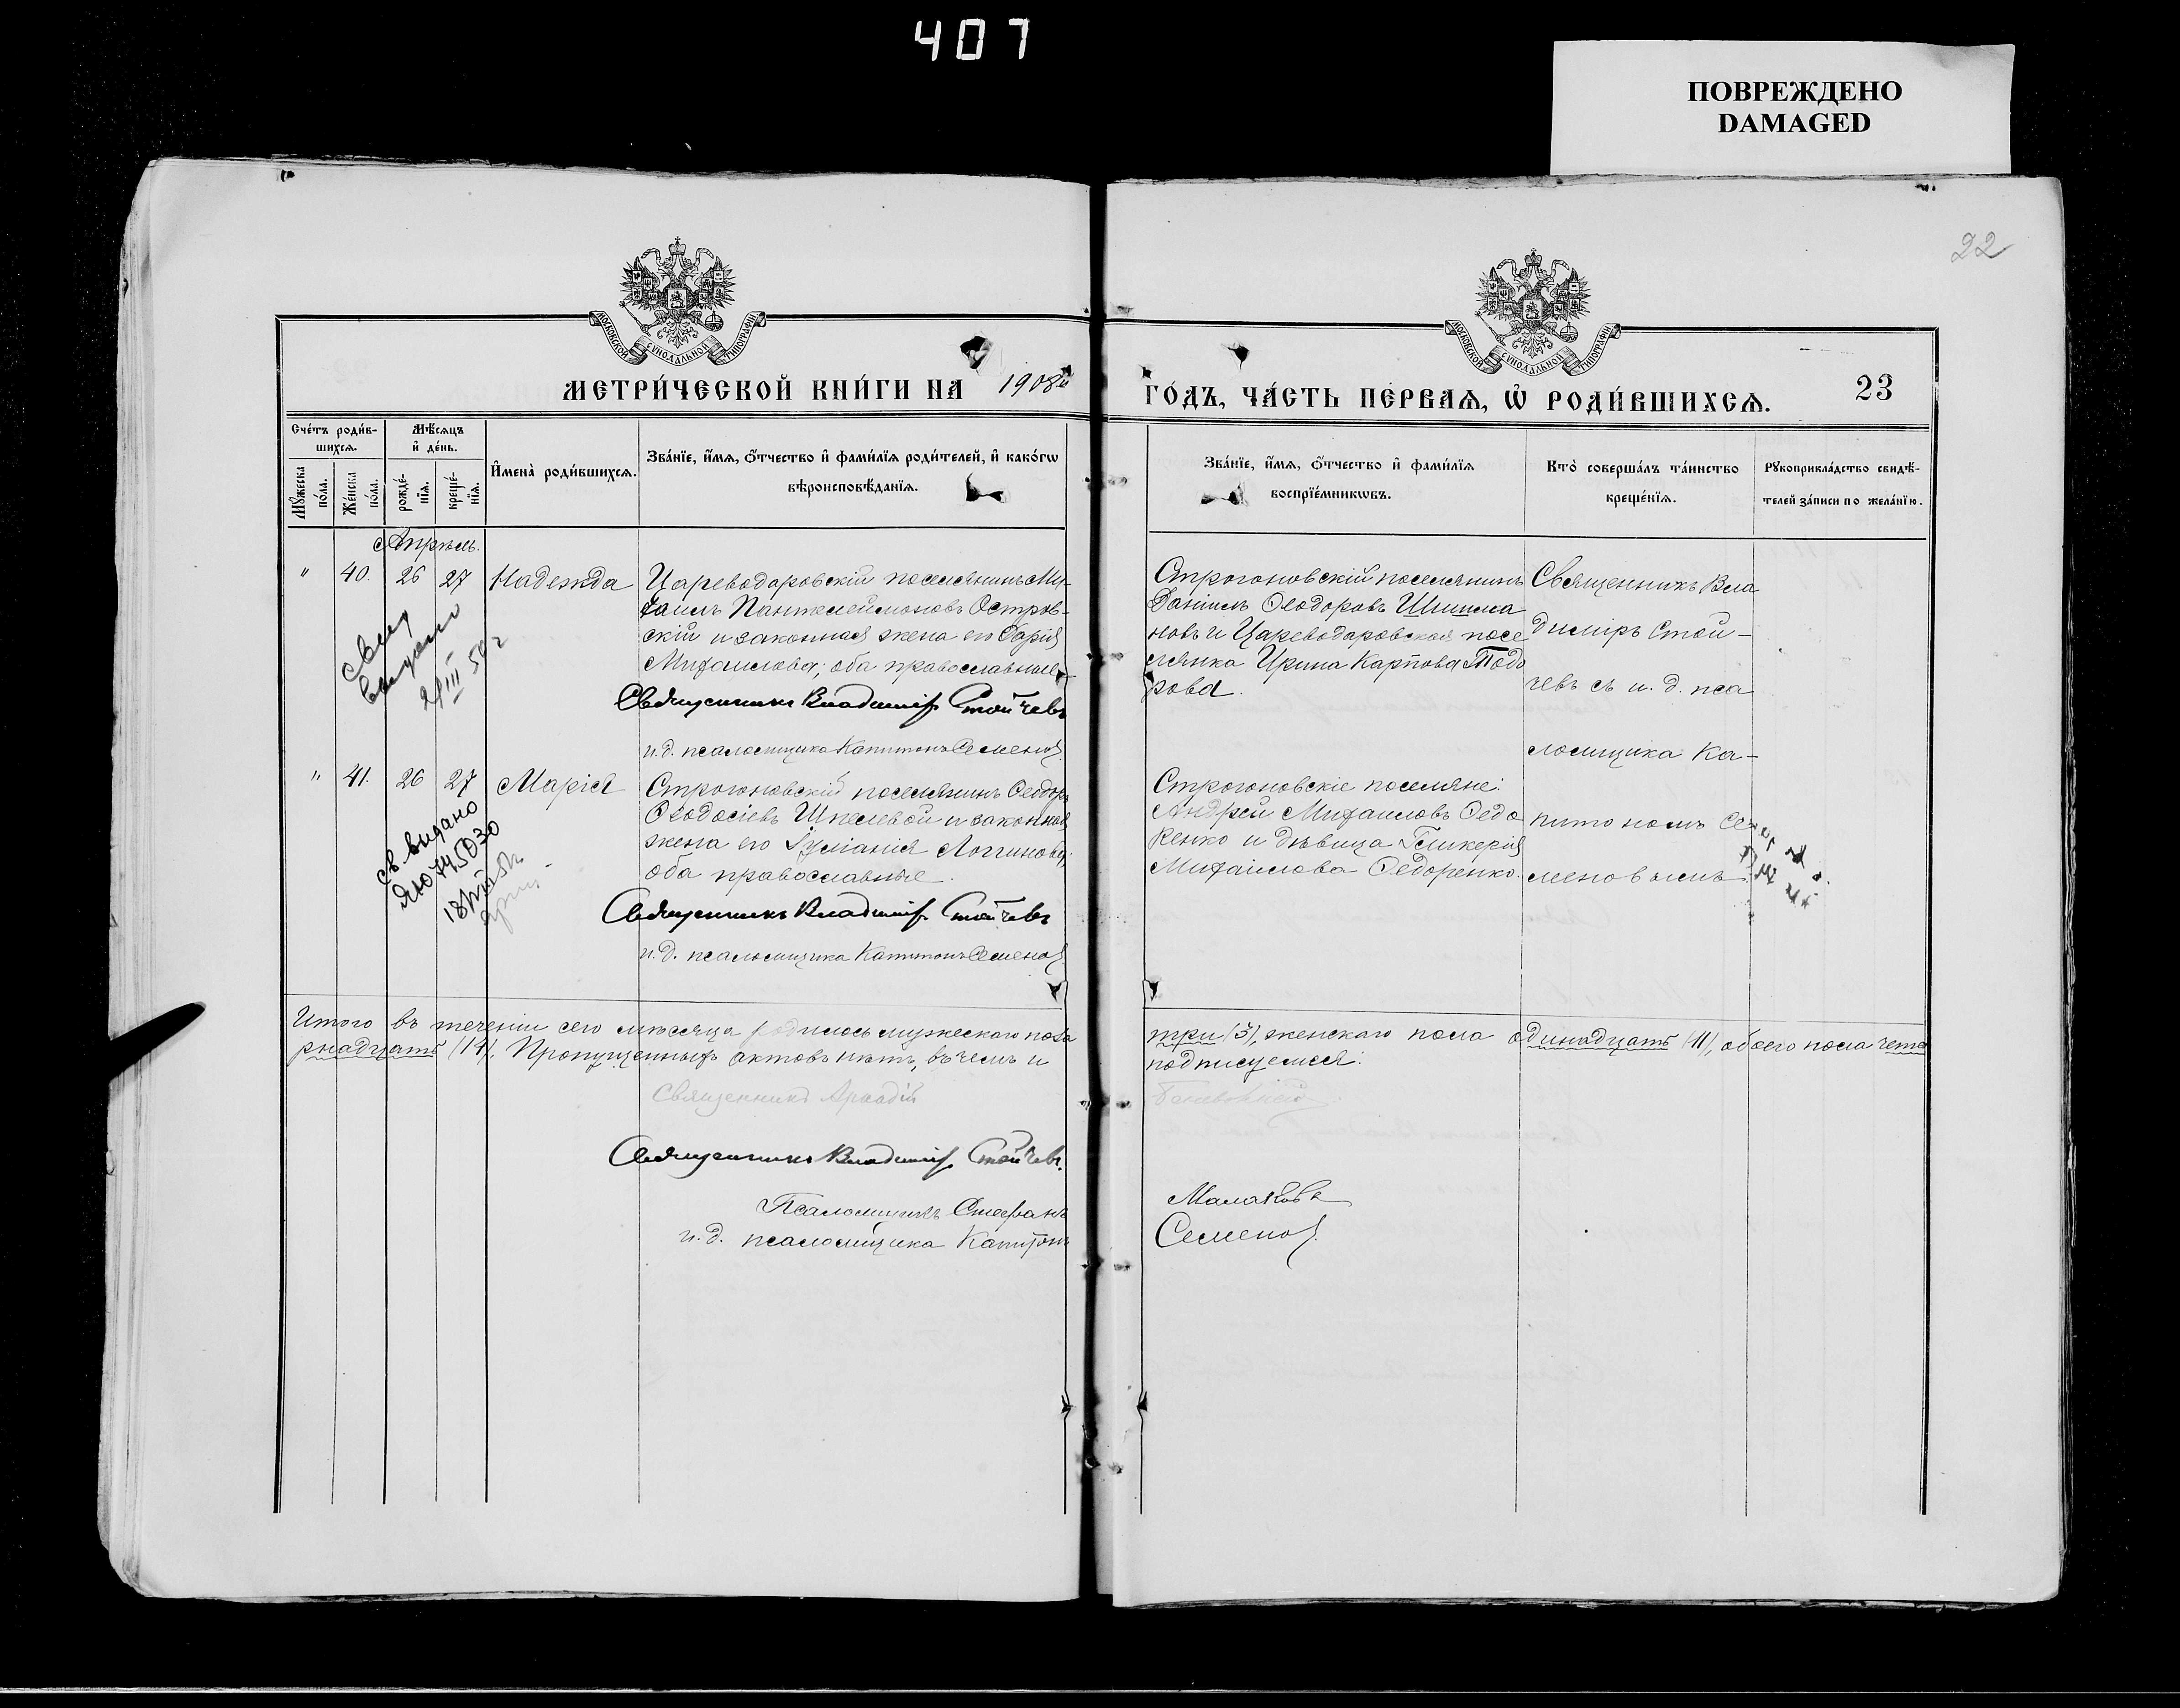 407
ПОВРЕЖДЕНО
DAMAGED
22
МОСКОВСКОЙ СУНОДАЛЬНОЙ ТИПОГРАФІИ
МОСКОВСКОЙ СУНОДАЛЬНОЙ ТИПОГРАФІИ
МЕТРИ́ЧЕСКОЙ КНИ́ГИ НА 1908й
ГО́ДЪ, ЧА́СТЬ ПЕ́РВАѦ, Ѡ҆ РОДИ́ВШИХСѦ.
23
Сче́тъ роди́в-
шихсѧ.
Мꙋ́жеска по́ла.
Же́нска по́ла.
Мѣ́сѧцъ
и҆ де́нь.
рожде́-
нїѧ.
креще́-
нїѧ.
И҆мена̀ роди́вшихсѧ.
Зва́нїе, и҆́мѧ, ѻ҆́тчество и҆ фами́лїѧ роди́телей, и҆ како́гѡ
вѣроисповѣ́данїѧ.
Зва́нїе, и҆́мѧ, ѻ҆́тчество и҆ фами́лїѧ
воспрїе́мникѡвъ.
Кто̀ соверша́лъ та́инство
креще́нїѧ.
Рꙋкоприкла́дство свидѣ́-
телей за́писи по жела́нїю.
Апрѣль.
" 40. 26 27 Надежда
Цареводаровскій поселянинъ Ми-
хаилъ Пантелеймоновъ Остров-
скій и законная жена его Дарія
Михаилова; оба православные
Священникъ Владиміръ Стойчевъ
и.д. псаломщика Капитонъ Семеновъ
выдано
21 III 59 г
Строгоновскій поселянинъ
Даніилъ Ѳеодоровъ Шишма
новъ и Цареводаровская посе
лянка Ирина Карпова Тодо
рова.
Священникъ Вла
диміръ Стой-
чевъ съ и. д. пса
ломщика Ка-
питономъ Се
меновымъ.
" 41. 26 27 Марія
Строгоновскій поселянинъ Ѳеодоръ
Ѳеодосіевъ Шпелевой и законная
жена его Іуліанія Логгинова;
оба православные.
Священникъ Владиміръ Стойчевъ
и.д. псаломщика Капитонъ Семеновъ
св выдано
745030
Строгоновскіе поселяне:
Андрей Михаиловъ Ѳедо
ренко и дѣвица Гликерія
Михаилова Ѳедоренко.
Итого въ теченіи сего мѣсяца родилось мужескаго пола
три (3), женскаго пола одинадцать (11), обоего пола четы
рнадцать (14). Пропущенныхъ актовъ нѣтъ, въ чемъ и
подписуемся:
Священникъ Аркадій
Священникъ Владиміръ Стойчевъ.
Псаломщикъ Стефанъ
Малаховъ
и.д. псаломщика Капитонъ
Семеновъ.